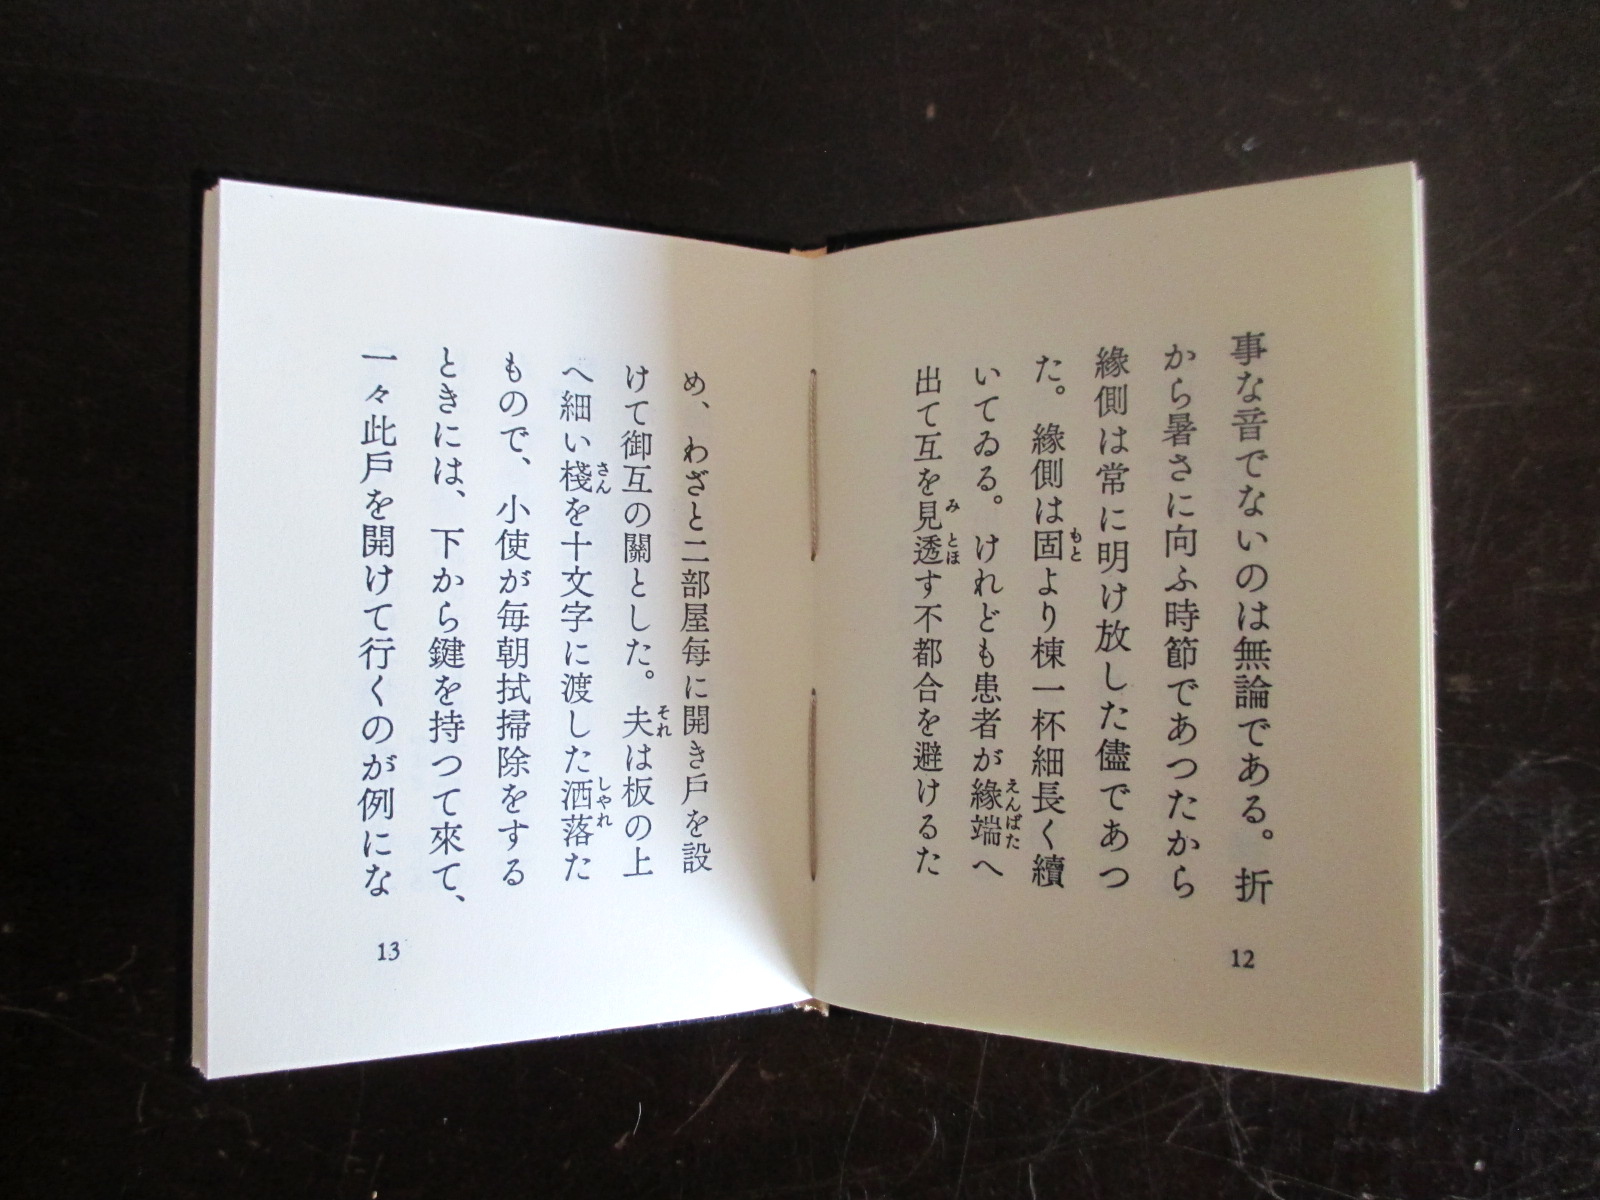 事な音でないのは無論である。折
から暑さに向ふ時節であつたから
緣側は常に明け放した儘であつ
た。緣側は固より棟一杯細長く續
いてゐる。けれども患者が緣端へ
出て互を見透す不都合を避けるた
12
め、わざと二部屋每に開き戶を設
けて御互の關とした。夫は板の上
へ細い棧を十文字に渡した洒落た
もので、小使が每朝拭掃除をする
ときには、下から鍵を持つて來て、
一々此戶を開けて行くのが例にな
13